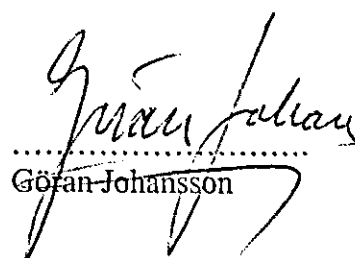 Göran Johans
....................................
Göran Johansson